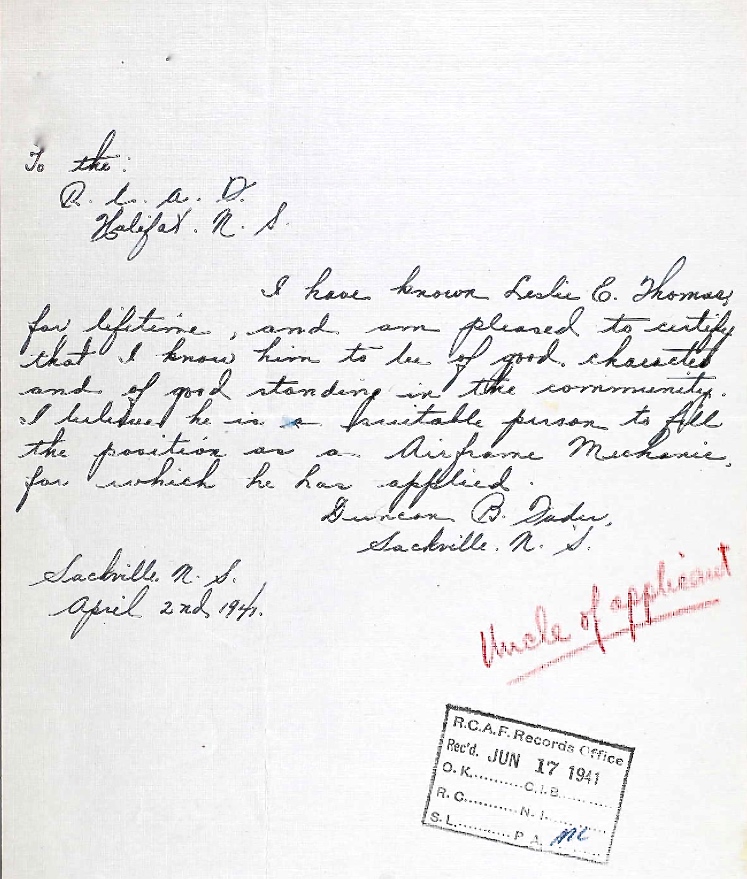 To the:
R. C. A. F.
Halifax. N. S.
I have known Leslie E. Thomas,
for lifetime, and am pleased to certify
that I know him to be of good. character
and of good standing in the community.
I believe he is a suitable person to fill
the position as a Airframe Mechanic,
for which he has applied.
Duncan B.
Sackville. N. S.
Sackville. N. S.
April 2nd, 1941.
Uncle of applicant
R.C.A.F. Records Office
Rec'd. JUN 17 1941
O.K..........C.I.B..........
R.C..........N.I..........
S.L..........P.A.